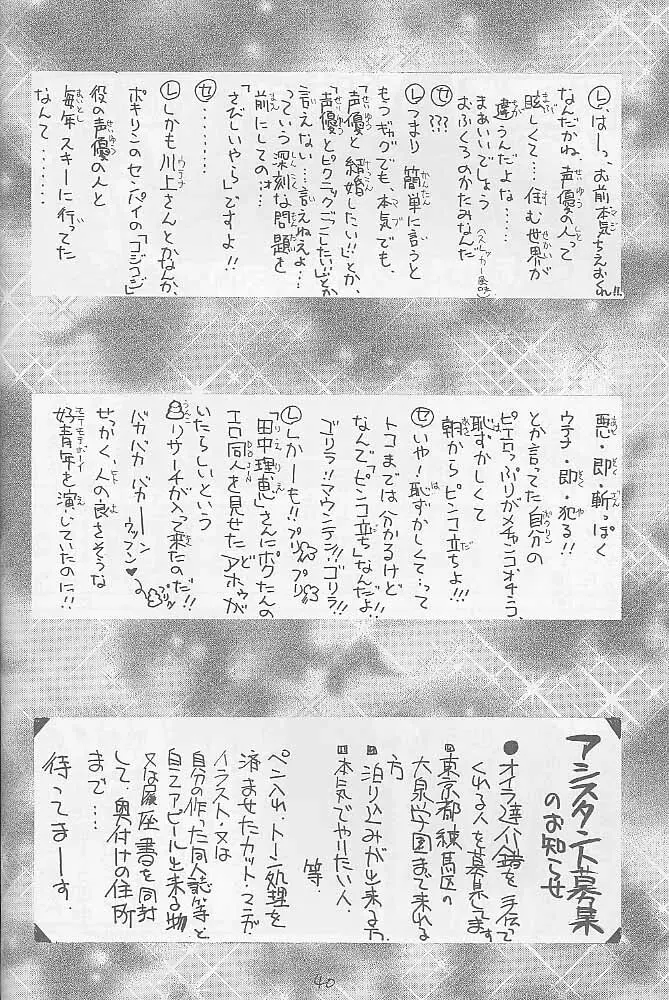 ㋹、はーっ、お前本気ちえおくれ!!
なんだかね、声優の人って
眩しくて…住む世界が
違うんだよな……
まあいいでしょう
おふくろのかたみなんだ
㋝???
㋹つまり簡単に言うと
もつギグでも、本気でも、
「声優と結婚したい!!」とか、
「声優とピクニックごこしたい!!」とか
言えない…言えねえよ…
っていう深刻な問題を
前にしてのォ…
「さびしいやら」ですよ!!
㋝……
㋹しかも川上さんとかなんか、
ポキリンのセンパイの「コジコジ」
役の声優の人と
毎年スキーに行ってた
なんて……
悪・即・斬っぽく
ウ子・即・犯る!!
とか言ってた自分の
ピエロっぷりがメチャンコオチう、
恥ずかしくて
朝からピンコ立ちよ!!!
㋝いや!恥ずかしくて…って
トコまでは分かるけど
なんで「ピンコ立ち」なんだよ!!
ゴリラ!!マウンテン!!ゴリラ!!
㋹しかーも!!プリプリ
「田中理恵」さんにボクたんの
エロ同人を見せたアホゥが
いたらしいという
リサーチが入って来たのだ!!
バカバカバカーン
ウッフン♥
せっかく、人の良さそうな
好青年を演じていたのに!!
アシスタント募集
のお知らせ
●オイラ達八錆を手伝って
くれる人を募集してます
■東京都練馬区の
大泉学園まで来れる
方
■泊り込みが出来る方
■本気でやりたい人、
等
ペン入れ、トーン処理を
済ませたカット・マンガ
イラスト・又は
自分の作った同人誌等と
自己アピール出来る物
又は履歴書を同封
して、奥付けの住所
まで…
待ってまーす。
40